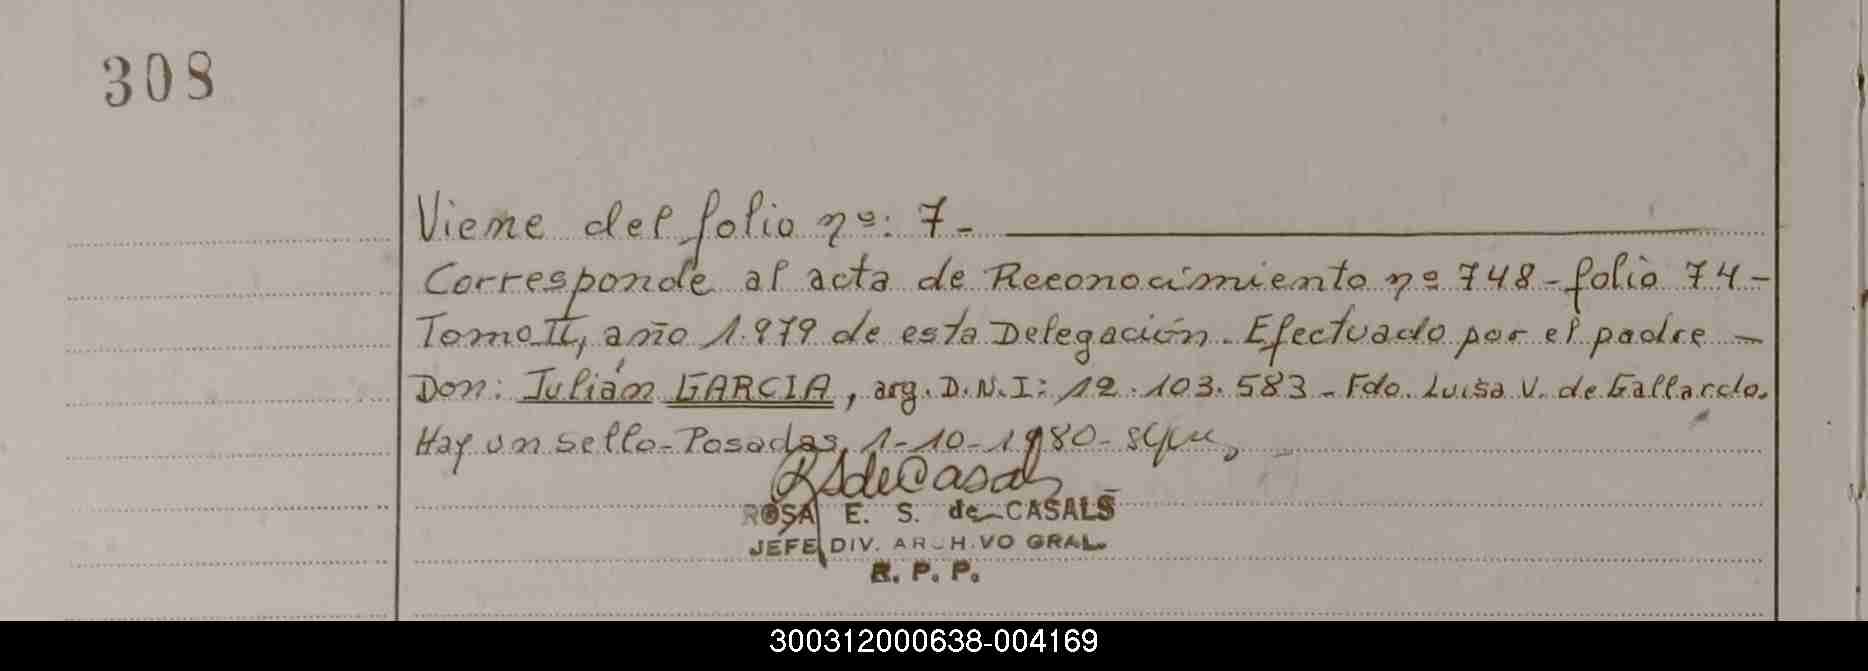 308
Viene del folio nº: 7-
Corresponde al acta de Reconocimiento nº 748-folio 74-
Tomo II, año 1.979 de esta Delegación. Efectuado por el padre -
Don: Julián GARCIA, arg. D.N.I: 12.103.583 - Fdo. Luisa V. de Gallardo.
Hay un sello-Posadas, 1-10-1980-
RSdeCasals
ROSA E. S. de CASALS
JEFE DIV. ARCHIVO GRAL.
R. P. P.
300312000638-004169